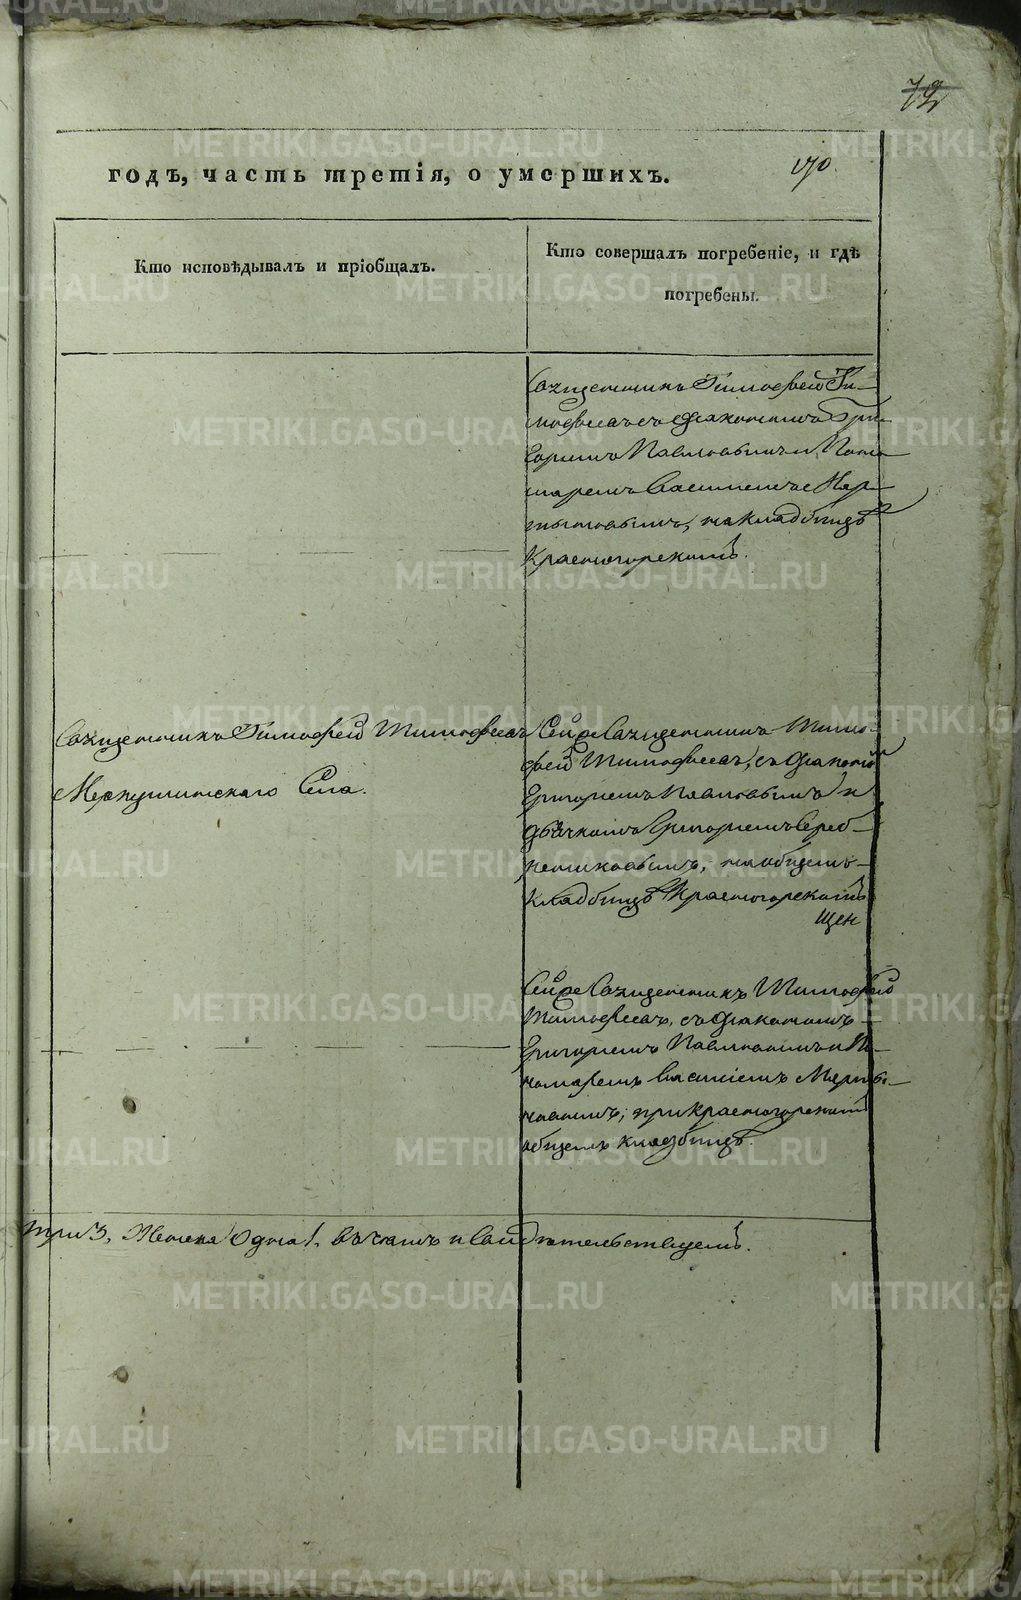 72
170.
годъ, часть третія, о умершихъ.
Кто исповѣдывалъ и пріобщалъ.
Кто совершалъ погребеніе, и гдѣ
погребены.
Священникъ Тимофей Ти-
мофеевъ съ Діакономъ Гри-
горіемъ Павловымъ и Поно
маремъ Василіемъ
на Кладбищѣ
Красногорскомъ.
Священникъ Тимофей Тимофеевъ
Меркушинскаго Села.
Священникъ Тимо-
фей Тимофеевъ, съ Діакономъ
Григорьемъ Павловымъ и
дьячкомъ Григорьемъ Сереб-
рениковымъ, на общемъ
Кладбищѣ Красногорскомъ
Священникъ Тимофей
Тимофеевъ, съ Діакономъ
Григорьемъ Павловымъ и По-
номаремъ Василіемъ
при Красногорскомъ
общемъ кладбищѣ.
три 3, Женска одна 1. въ чемъ и свидетельствуемъ.
METRIKI.GASO-URAL.RU